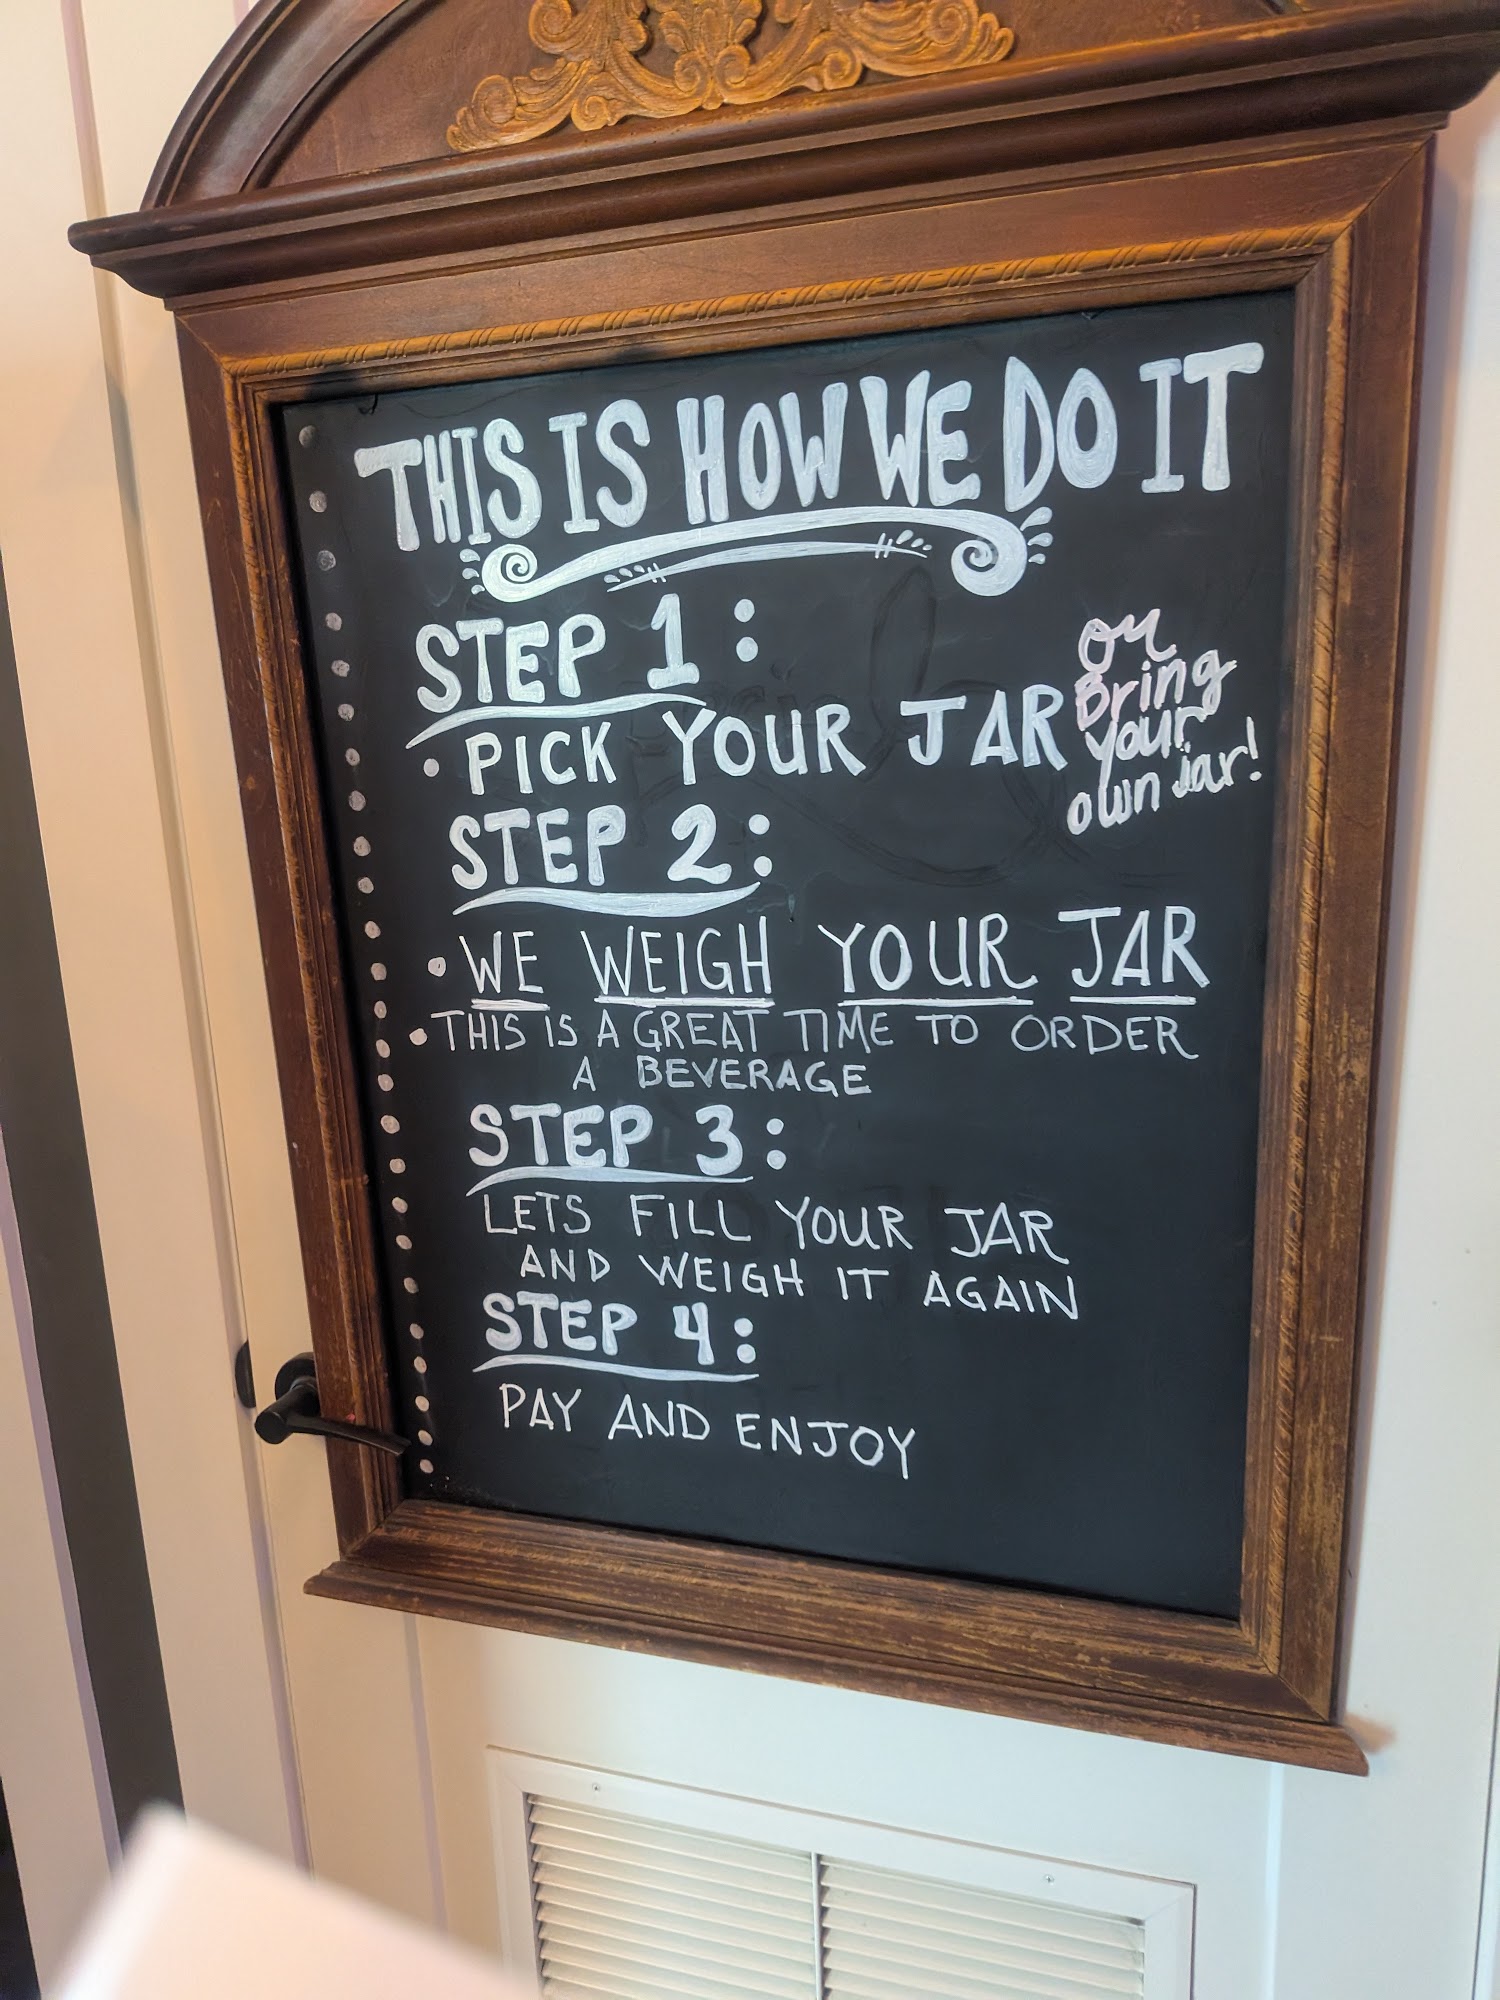 THIS IS HOW WE DO IT
STEP 1:
• PICK YOUR JAR
or
Bring
your
own jar!
STEP 2:
• WE WEIGH YOUR JAR
• THIS IS A GREAT TIME TO ORDER
A BEVERAGE
STEP 3:
LETS FILL YOUR JAR
AND WEIGH IT AGAIN
STEP 4:
PAY AND ENJOY